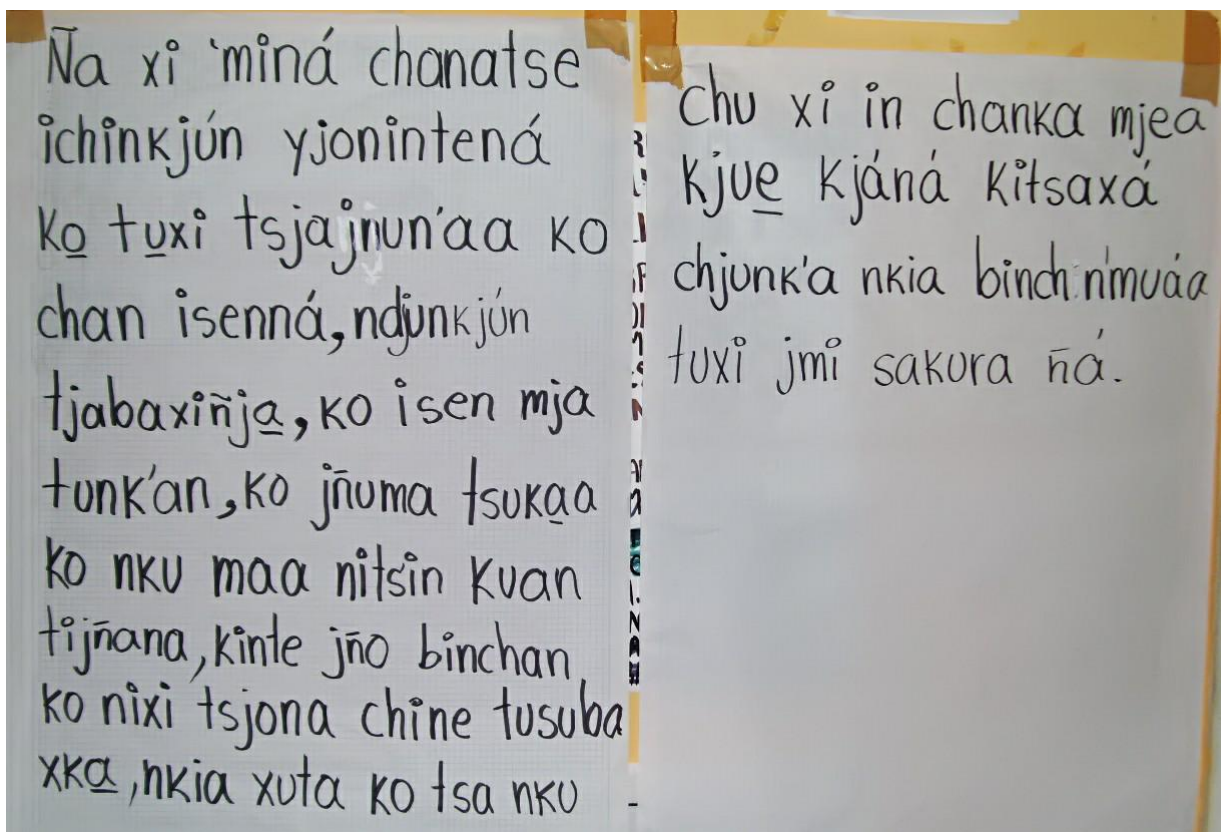 Ña xi 'miná chanatse
ichinkjún yjonintená
ko̱ tu̱xi tsjajnun'aa ko
chan isenná, ndjunkjún
tjabaxiñja̱, ko isen mja
tunk'an, ko jñuma tsuka̱a
ko nku maa nitsin kuan
tijñana, kinte jño binchan
ko nixi tsjona chine tusuba
xka̱, nkia xuta ko tsa nku
chu xi in chanka mjea
kjue̱ kjáná kitsaxá
chjunk'a nkia binchin'muáa
tuxi jmi sakura ñá.